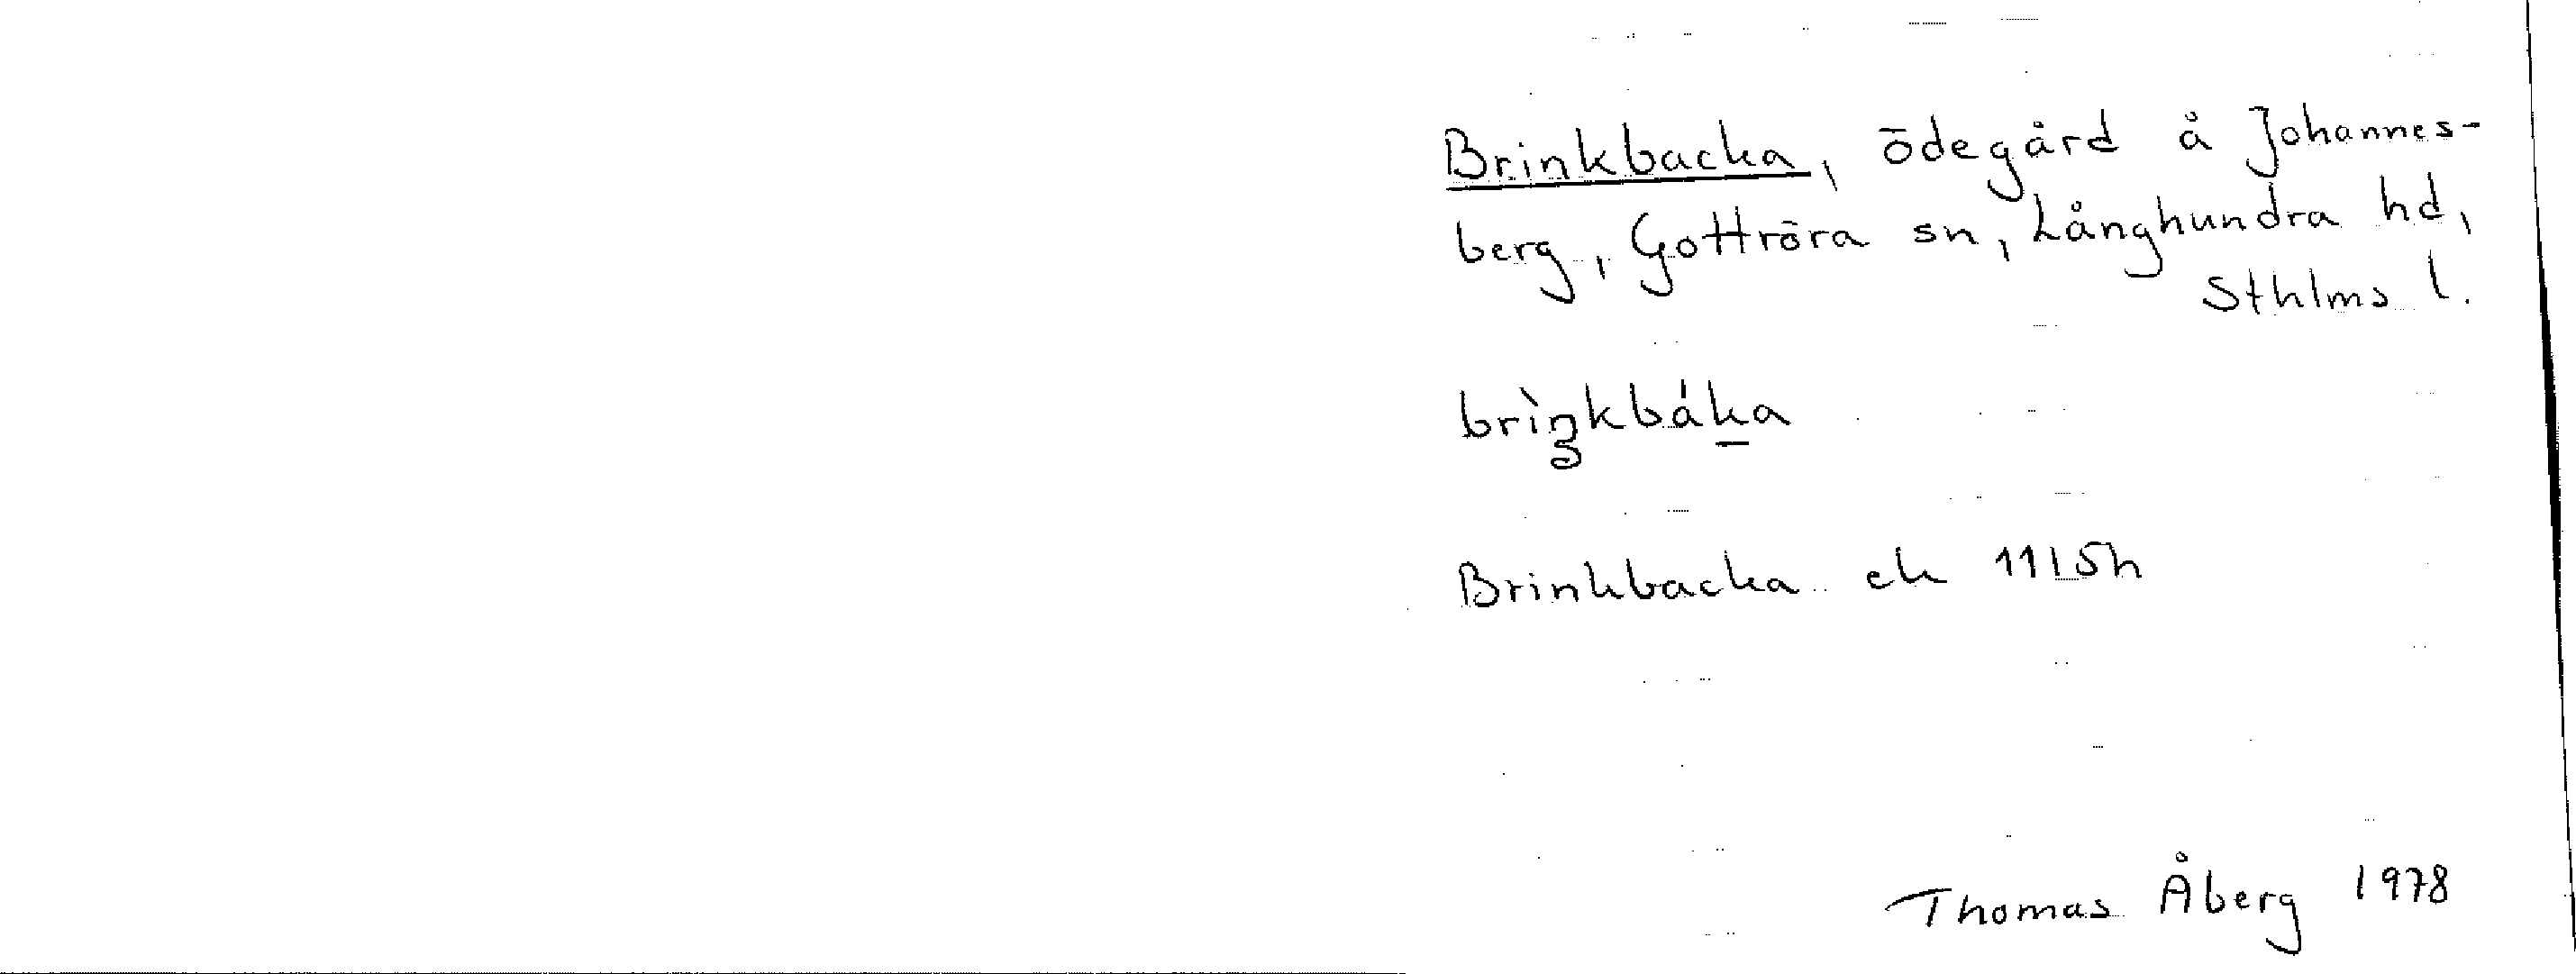 Brinkbacka, ödegård å Johannes-
berg, Gottröra sn, Långhundra hd,
Sthlms l.
brìŋkbáka
Brinkbacka ek 11I5h
Thomas Åberg 1978